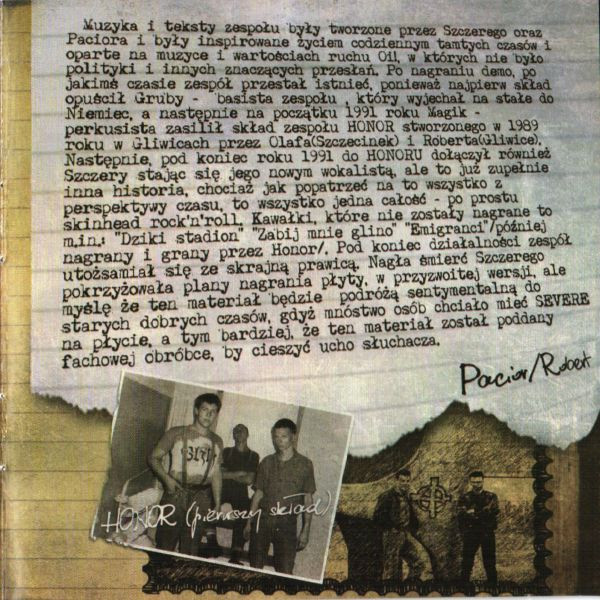 Muzyka i teksty zespołu były tworzone przez Szczerego oraz
Paciora i były inspirowane życiem codziennym tamtych czasów i
oparte na muzyce i wartościach ruchu Oi!, w których nie było
polityki i innych znaczących przesłań. Po nagraniu demo, po
jakimś czasie zespół przestał istnieć, ponieważ najpierw skład
opuścił Gruby - basista zespołu , który wyjechał na stałe do
Niemiec, a następnie na początku 1991 roku Magik -
perkusista zasilił skład zespołu HONOR stworzonego w 1989
roku w Gliwicach przez Olafa(Szczecinek) i Roberta(Gliwice).
Następnie, pod koniec roku 1991 do HONORU dołączył również
Szczery stając się jego nowym wokalistą, ale to już zupełnie
inna historia, chociaż jak popatrzeć na to wszystko z
perspektywy czasu, to wszystko jedna całość - po prostu
skinhead rock'n'roll. Kawałki, które nie zostały nagrane to
m.in.: "Dziki stadion" "Zabij mnie glino" "Emigranci"/później
nagrany i grany przez Honor/. Pod koniec działalności zespół
utożsamiał się ze skrajną prawicą. Nagła śmierć Szczerego
pokrzyżowała plany nagrania płyty, w przyzwoitej wersji, ale
myślę że ten materiał będzie podróżą sentymentalną do
starych dobrych czasów, gdyż mnóstwo osób chciało mieć SEVERE
na płycie, a tym bardziej, że ten materiał został poddany
fachowej obróbce, by cieszyć ucho słuchacza.
Pacior/Robert
HONOR (pierwszy skład)